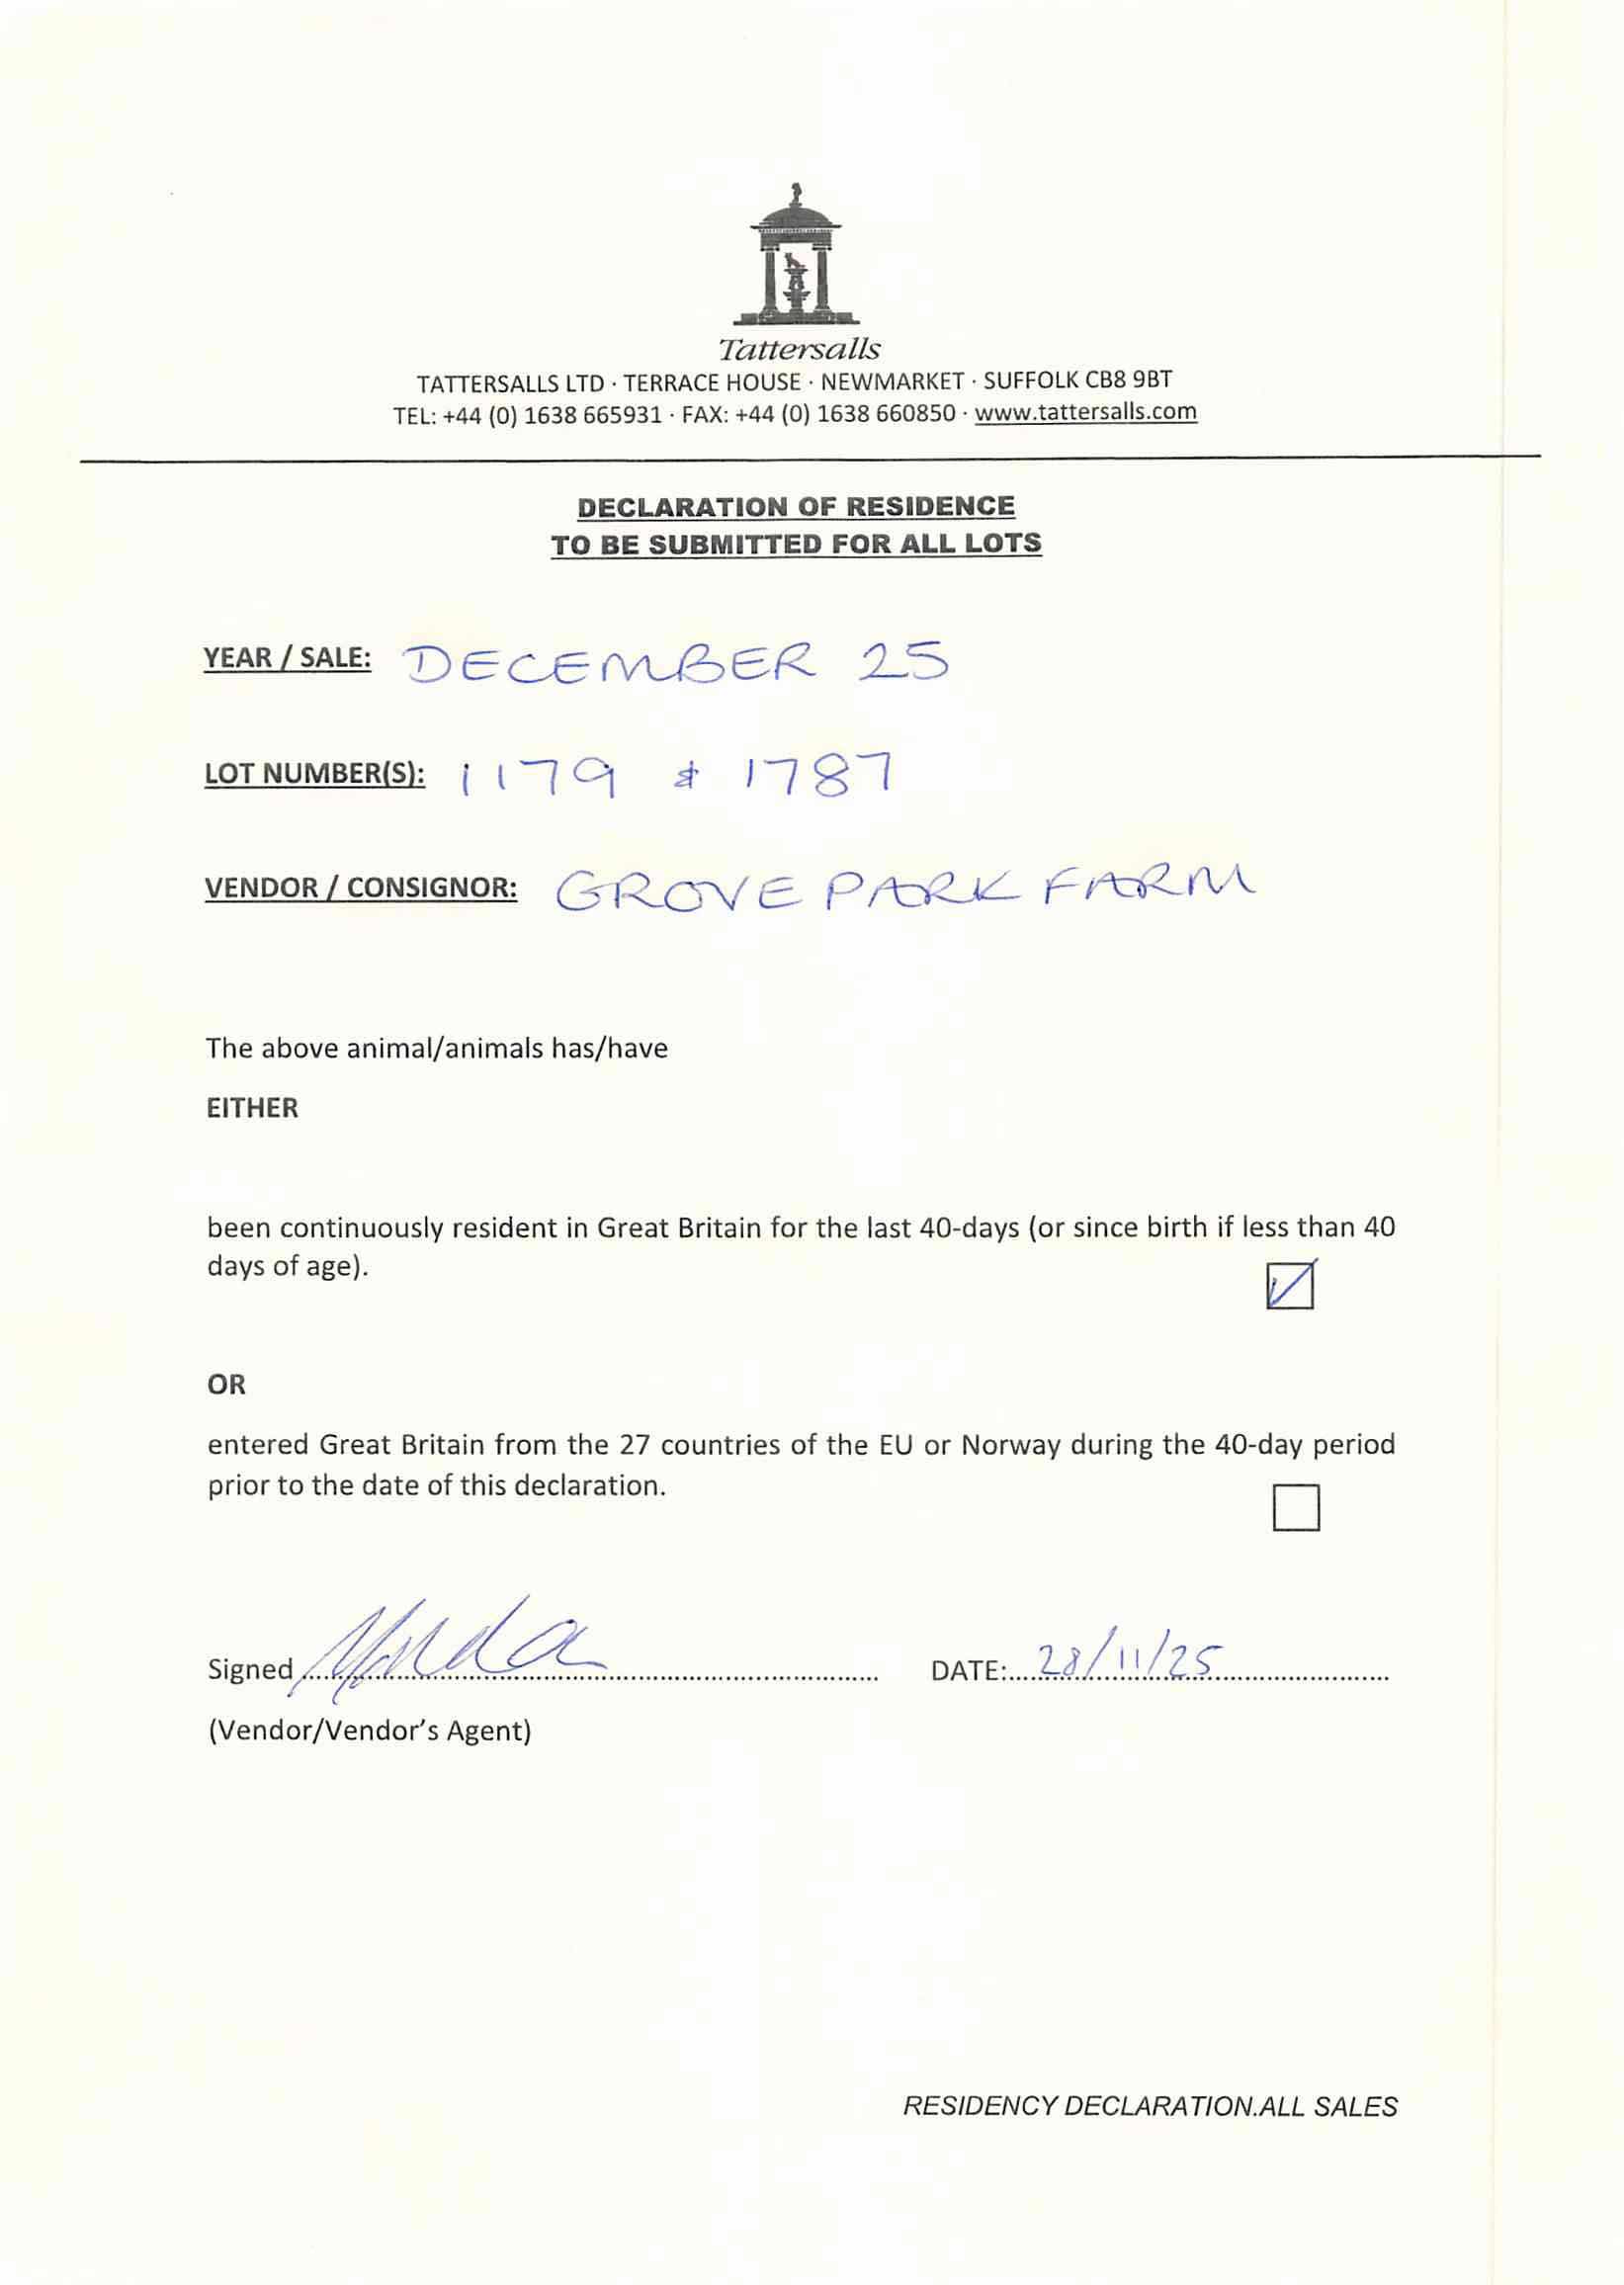 Tattersalls
TATTERSALLS LTD · TERRACE HOUSE · NEWMARKET · SUFFOLK CB8 9BT
TEL: +44 (0) 1638 665931 · FAX: +44 (0) 1638 660850 · www.tattersalls.com
DECLARATION OF RESIDENCE
TO BE SUBMITTED FOR ALL LOTS
YEAR / SALE: DECEMBER 25
LOT NUMBER(S): 1179 & 1787
VENDOR / CONSIGNOR: GROVE PARK FARM
The above animal/animals has/have
EITHER
been continuously resident in Great Britain for the last 40-days (or since birth if less than 40
days of age).
OR
entered Great Britain from the 27 countries of the EU or Norway during the 40-day period
prior to the date of this declaration.
Signed DATE: 28/11/25
(Vendor/Vendor's Agent)
RESIDENCY DECLARATION.ALL SALES